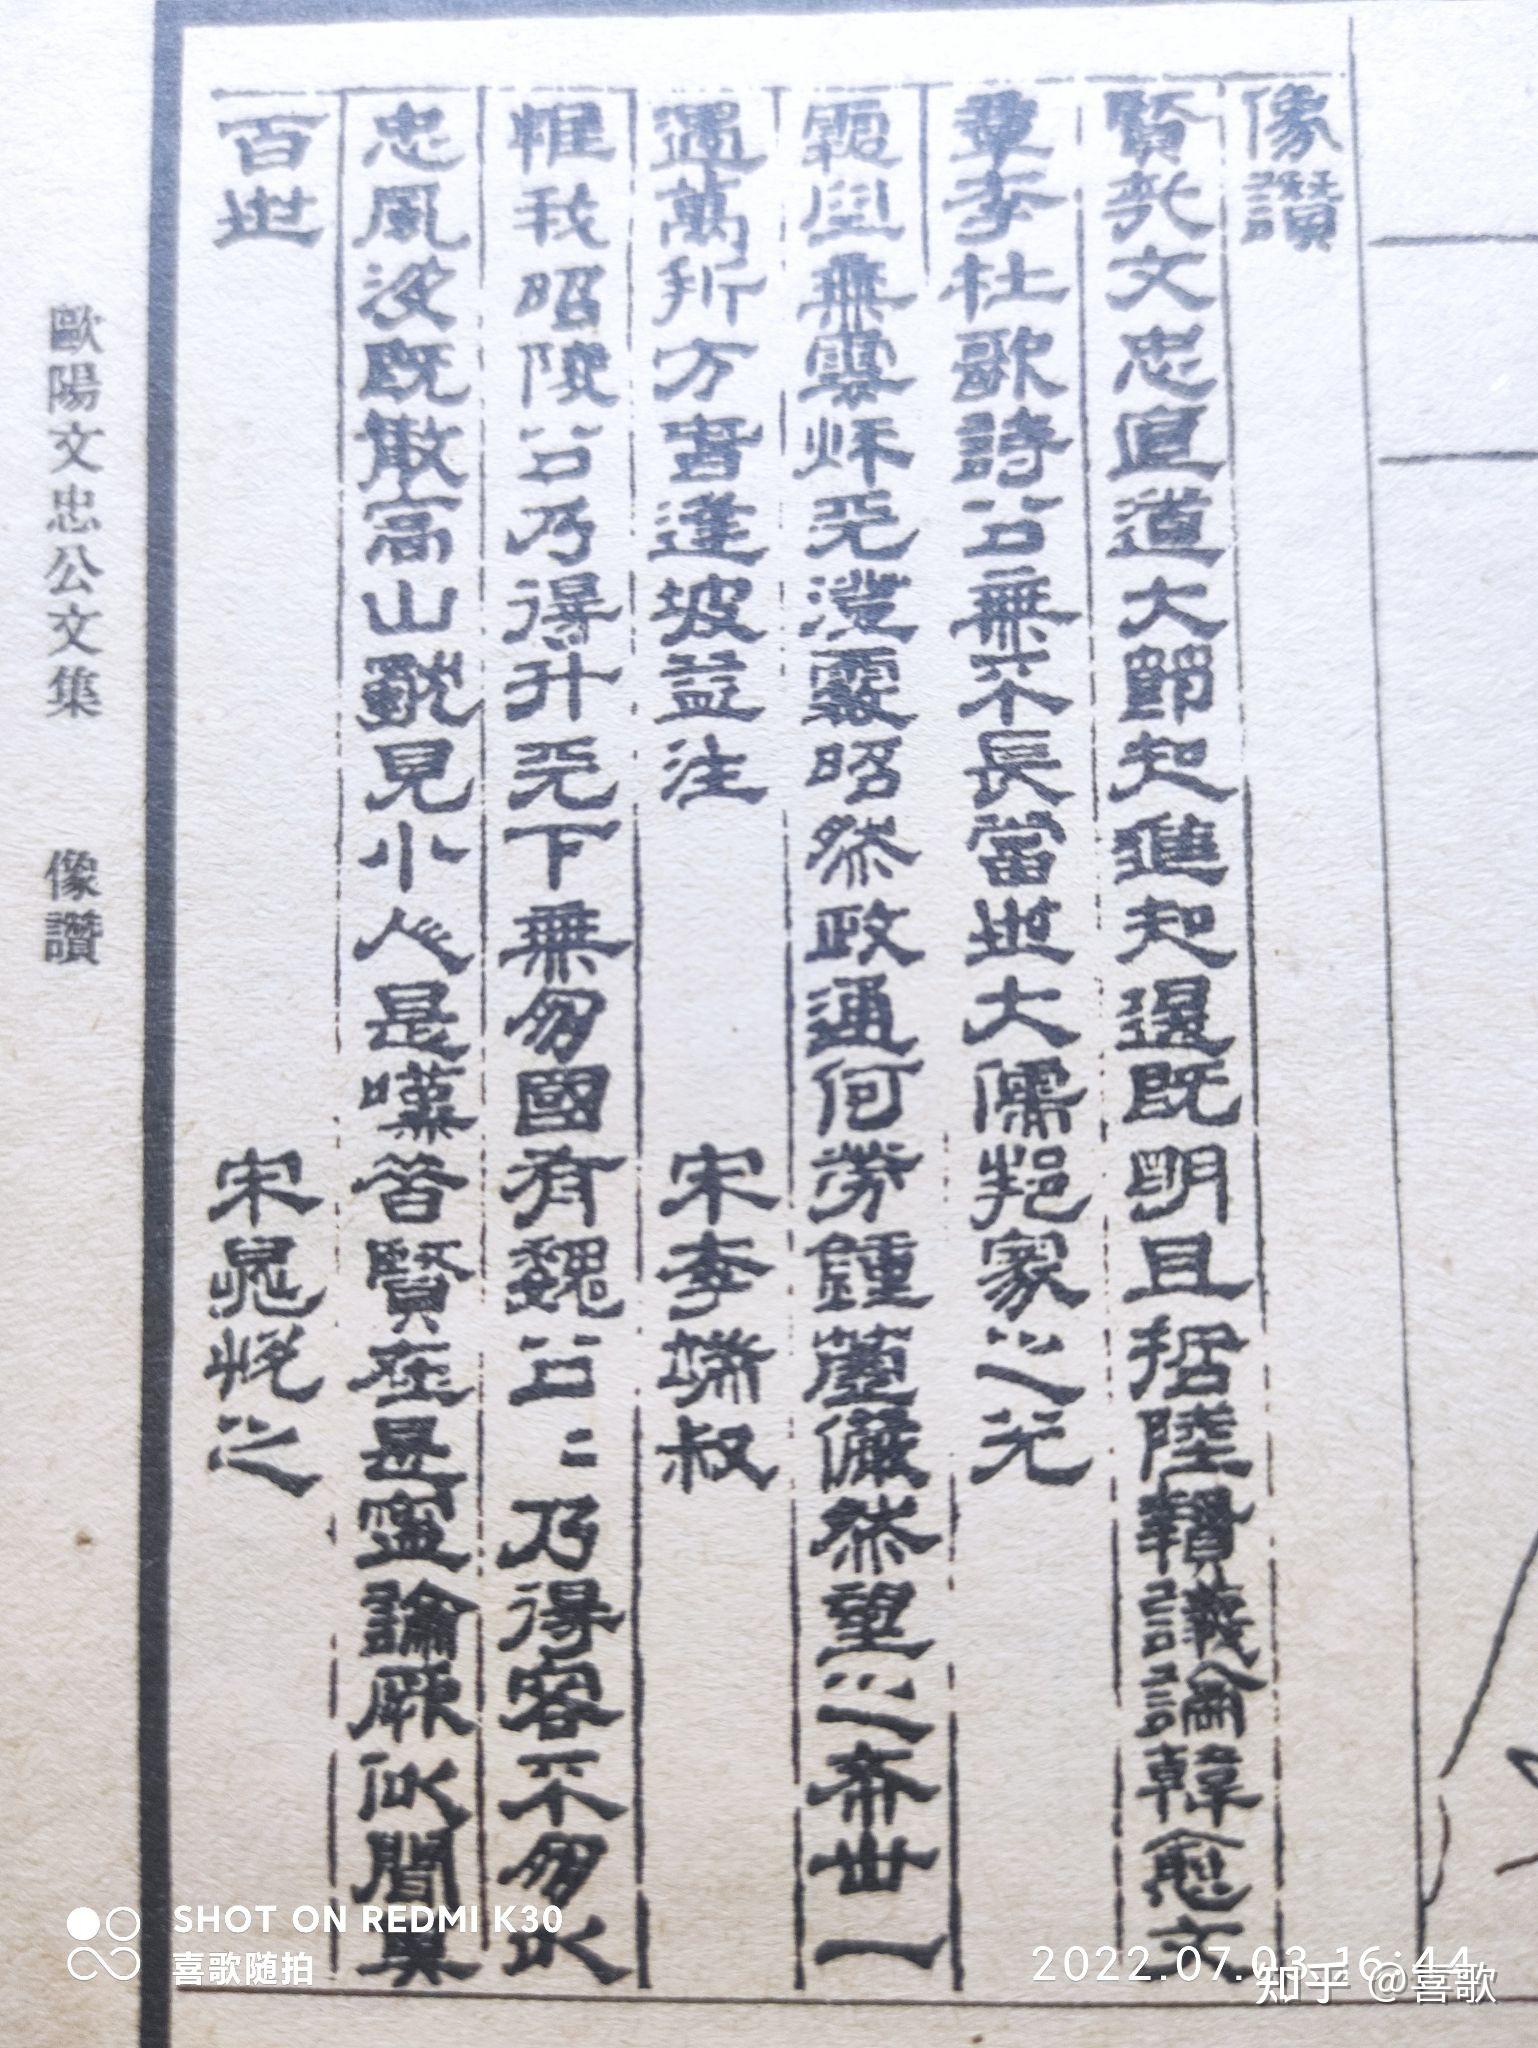 像讚
賢哉文忠直道大節知進知退既明且哲陸贄議論韓愈文
章李杜歌詩公無不長當世大儒邦家之光
無雲炳光澄霽昭然政通何勞鍾簴儼然望之希世一
遇萬所方昔逢坡益注 宋李端叔
惟我昭陵公乃得升天下無朋國有魏公公乃得容不朋以
忠風波既散高山獨見小人是嘆昔賢在是寧論厥似聞莫
百世 宋晁悅之
歐陽文忠公文集 像讚
SHOT ON REDMI K30
喜歌随拍
2022.07.03 16:44
知乎 @喜歌